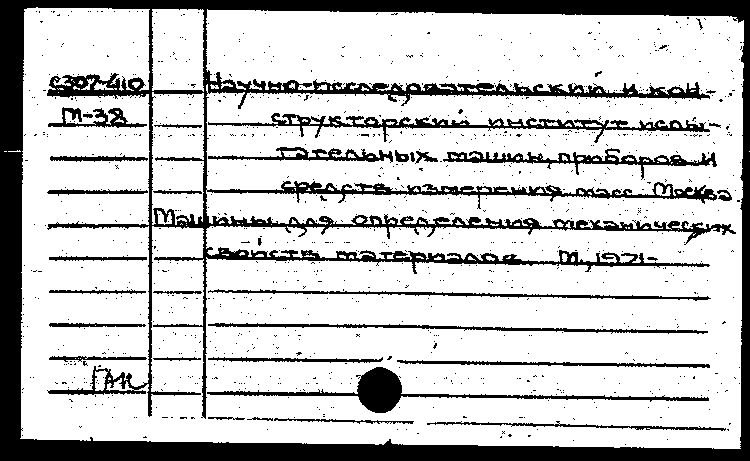 с307-410 Научно-исследовательский и кон-
М-38 структорский институт испы-
тательных машин, приборов и
средств измерения масс. Москва
Машины для определения механических
свойств материалов. М., 1971-
ГАК